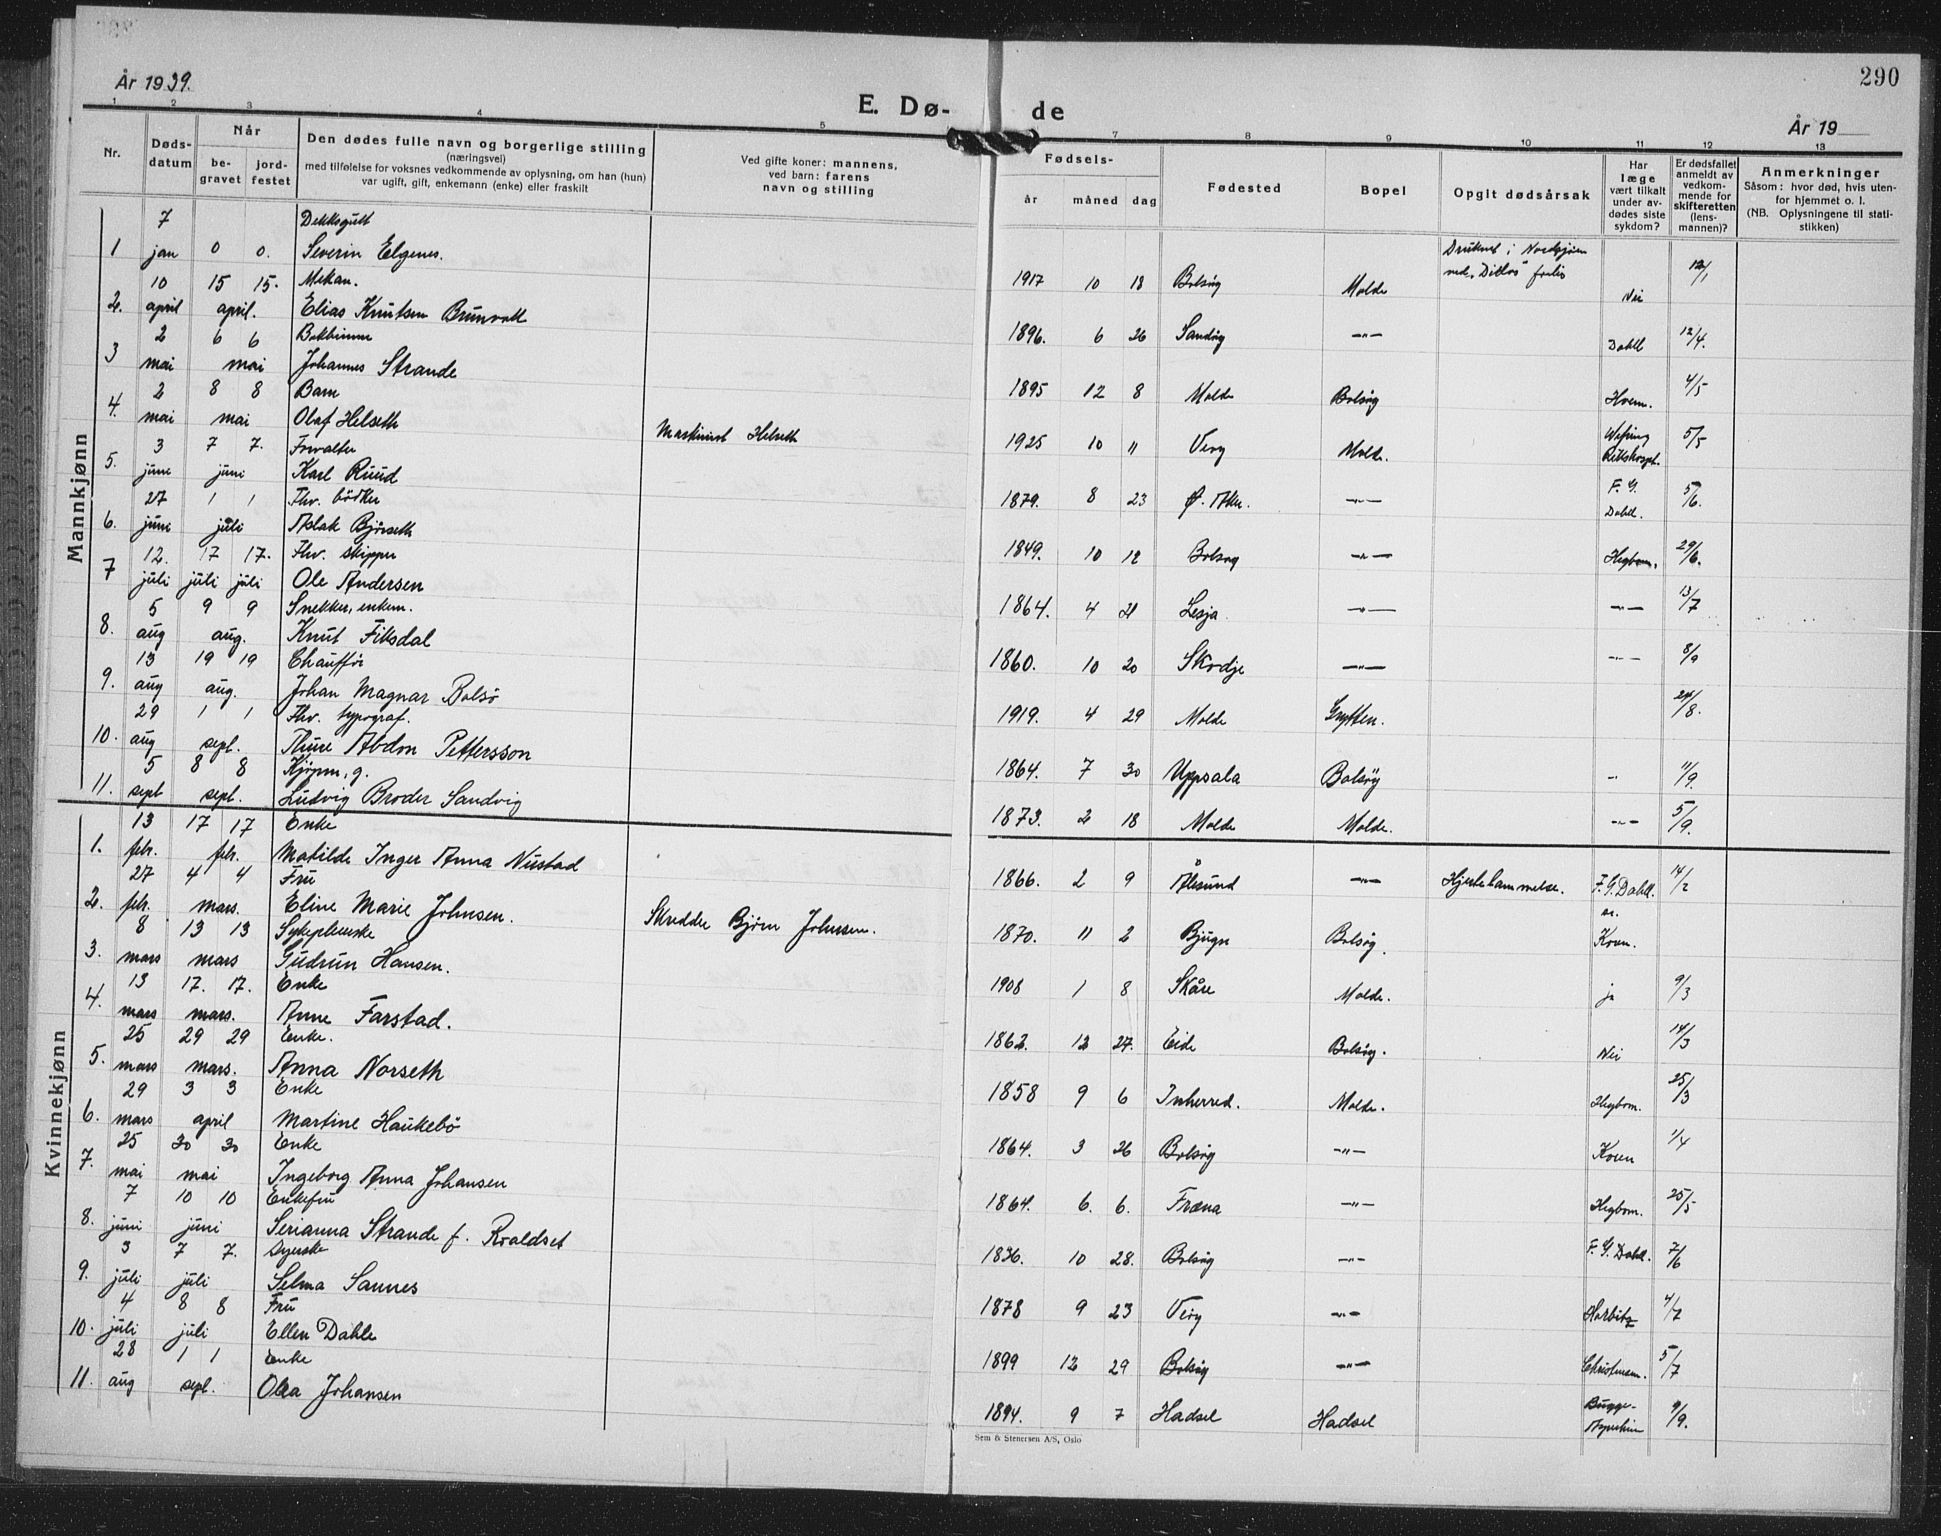 År 1939.
290
E. Dø- de
År 19
1 2 3 4 5 7 8 9 10 11 12 13
Nr.
Døds-
datum
Når
be-
gravet
jord-
festet
Den dødes fulle navn og borgerlige stilling
(næringsvei)
med tilføielse for voksnes vedkommende av oplysning, om han (hun)
var ugift, gift, enkemann (enke) eller fraskilt
Ved gifte koner: mannens,
ved barn: farens
navn og stilling
Fødsels-
år måned dag
Fødested
Bopel
Opgit dødsårsak
Har
læge
vært tilkalt
under av-
dødes siste
sykdom?
Er dødsfallet
anmeldt av
vedkom-
mende for
skifteretten
(lens-
mannen)?
Anmerkninger
Såsom: hvor død, hvis uten-
for hjemmet o. l.
(NB. Oplysningene til stati-
stikken)
Mannkjønn
7 Dekksgutt Druknet i Nordsjøen
1 jan 0 0. Severin Elgenes. 1917 10 18 Bolsøy Molde ved "Ditlos" forlis Nei 12/1
10 15 15. Mekan.
2. april april. Elias Knutsen Brunvoll 1896. 6 26 Sandøy -"- Dahll 12/4.
2 6 6 Bokbinner
3 mai mai Johannes Strande 1895 12 8 Molde Bolsøy Hvem. 4/5
2 8 8 Barn
4. mai mai Olaf Helseth Maskinist Helseth 1925 10 11 Veøy Molde. Rikshospt. 5/5
3 7 7. Forvalter
5. june juni Karl Ruud 1879. 8 23 Ø. Aker. -"- F. G. Dahll. 5/6.
27 1 1 Fhv. bödker
6. june juli Aslak Bjørseth 1849. 10 12 Bolsøy -"- Hegbom. 29/6.
12. 17 17. Fhv. skipper
7 juli juli juli Ole Andersen 1864. 4 21 Lesja. -"- -"- 13/7
5 9 9 Snekker, enkem.
8. aug aug. Knut Fiksdal 1860. 10 20 Skodje -"- -"- 8/9
13 19 19 Chauffør
9. aug aug. Johan Magnar Bolsø 1919. 4 29 Molde Grytten. 24/8.
29 1 1 Fhv. typograf.
10. aug sept. Thure Abdon Pettersson 1864. 7 30 Uppsala Bolsøy " 11/9.
5 8 8 Kjøpm, g.
11. sept sept. Ludvig Broder Sandvig 1873. 2 18 Molde Molde. -"- 5/9.
Kvinnekjønn
13 17 17 Enke
1. febr. febr. Matilde Inger Anna Nustad 1866. 2 9 Ålesund -"- Hjertelammelse. F. G. Dahll. sr. 14/2
27 4 4 Fru
2. febr. mars. Eline Marie Johnsen. Skredder Bjørn Johnsen. 1870. 11 2 Bjugn Bolsøy. Koren.
8 13 13 Sykepleierske
3. mars mars Gudrun Hansen. 1908 1 8 Skåre Molde. ja 9/3
13 17. 17. Enke
4. mars mars. Anne Farstad. 1862. 12 27. Eide Bolsøy. Nei 14/3
25 29 29 Enke.
5. mars mars. Anna Norseth 1858 9 6 Inherred. Molde. Hegbom. 25/3
29 3 3 Enke
6. mars april Martine Haukebö 1864. 3 26 Bolsøy -"- Koren 1/4
25 30 30 Enke
7. mai mai Ingeborg Anna Johansen 1864. 6. 6. Fræna -"- Hegbom. 25/5
7 10 10 Enkefru
8. juni juni Serianna Strande f. Roaldset 1836. 10 28. Bolsøy -"- F. G. Dahll. 7/6
3 7 7. Syerske
9. juli juli Selma Sannes 1878 9 23 Veøy -"- Harbitz 4/7
4 8 8 Fru
10. juli juli Ellen Dahle 1899 12 29 Bolsøy -"- Christensen. 5/7
28 1 1 Enke
11. aug sept. Olea Johansen 1894. 9 7 Hadsel Hadsel Bugge- 9/9.
Sem & Stenersen A/S, Oslo